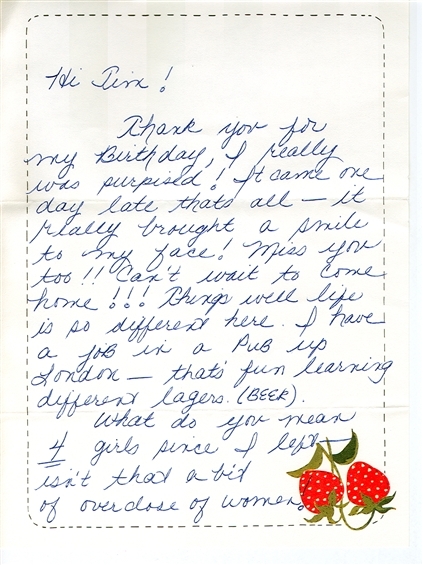 Hi Jim!
Thank you for
my Birthday, I really
was surpised! It came one
day late thats all — it
really brought a smile
to my face! Miss you
too!! Can't wait to come
home!!! Things well life
is so different here. I have
a job in a Pub up
London — thats' fun learning
different lagers. (BEER).
What do you mean
4 girls since I left—
isn't that a bit
of overdose of women.